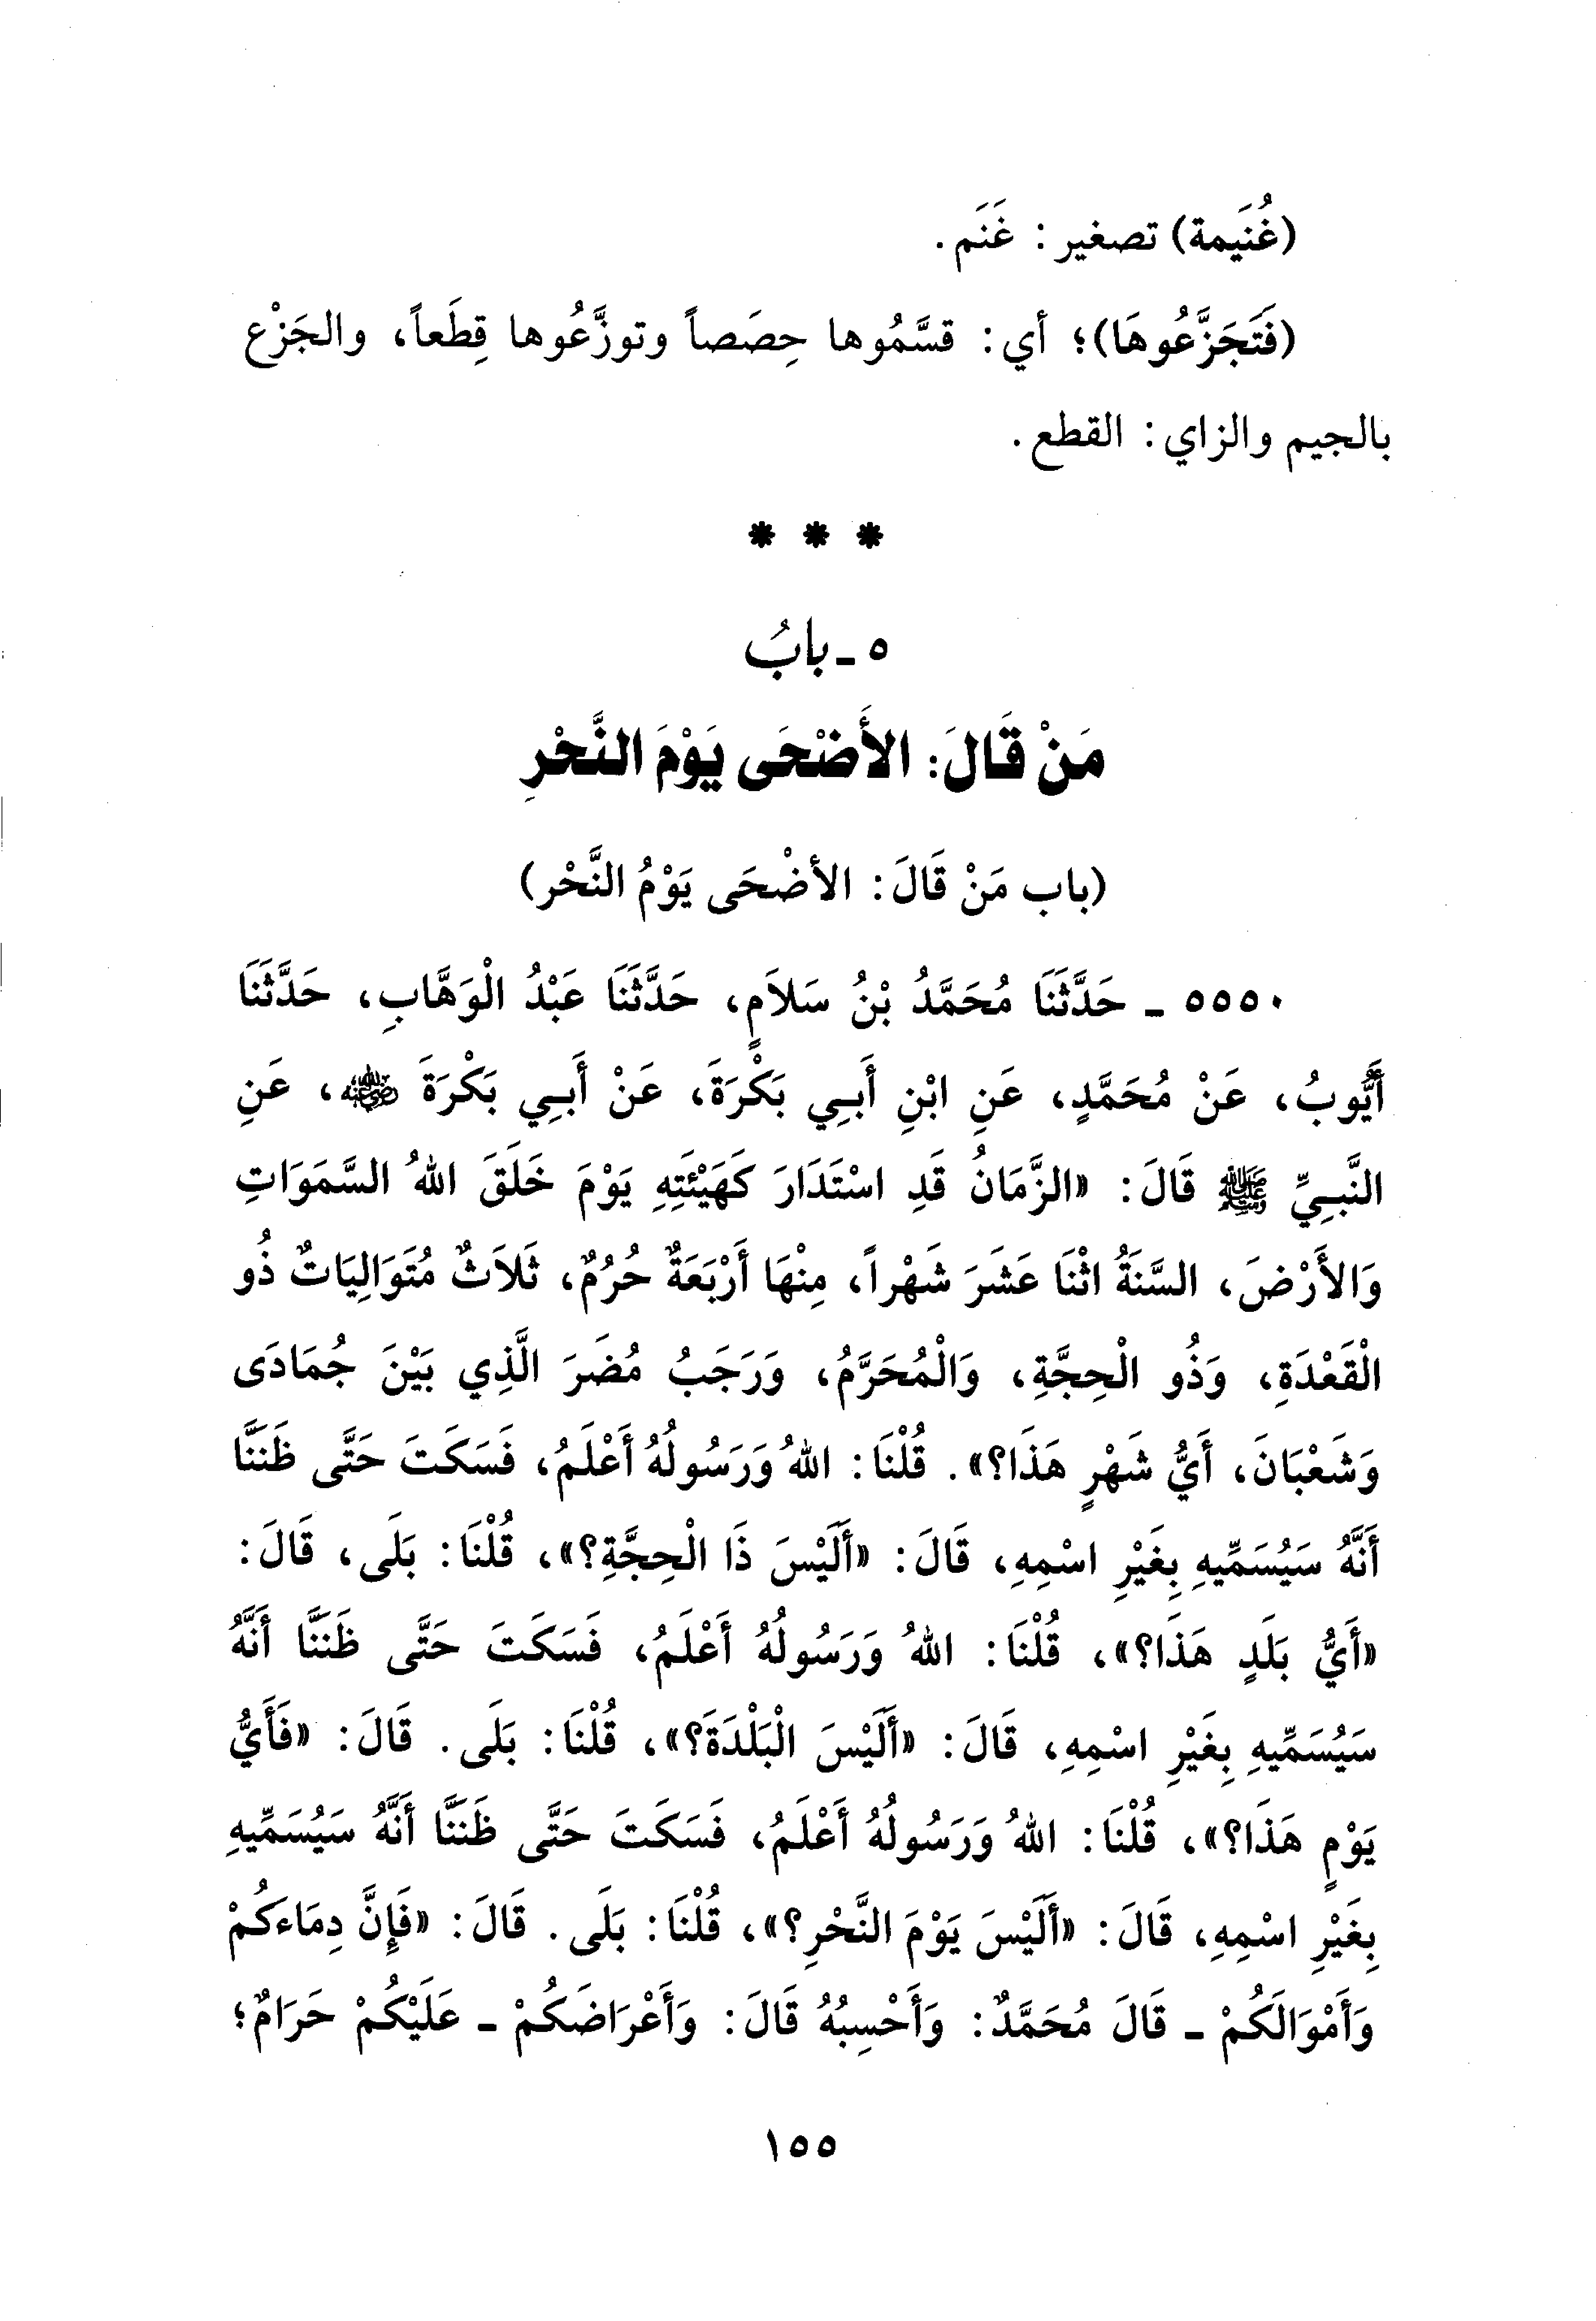 (غُنَيمة) تصغير: غَنَم.
(فَتَجَزَّعُوهَا)؛ أي: قسَّمُوها حِصَصاً وتوزَّعُوها قِطَعاً، والجَزْع
بالجيم والزاي: القطع.
* * *
٥ - بابُ
مَنْ قَالَ: الأَضْحَى يَوْمَ النَّحْرِ
(باب مَنْ قَالَ: الأضْحَى يَوْمُ النَّحْر)
٥٥٥٠ - حَدَّثَنَا مُحَمَّدُ بْنُ سَلاَمٍ، حَدَّثَنَا عَبْدُ الْوَهَّابِ، حَدَّثَنَا
أَيُّوبُ، عَنْ مُحَمَّدٍ، عَنِ ابْنِ أَبِي بَكْرَةَ، عَنْ أَبِي بَكْرَةَ رضي الله عنه، عَنِ
النَّبِيِّ ﷺ قَالَ: «الزَّمَانُ قَدِ اسْتَدَارَ كَهَيْئَتِهِ يَوْمَ خَلَقَ اللهُ السَّمَوَاتِ
وَالأَرْضَ، السَّنَةُ اثْنَا عَشَرَ شَهْراً، مِنْهَا أَرْبَعَةٌ حُرُمٌ، ثَلاَثٌ مُتَوَالِيَاتٌ ذُو
الْقَعْدَةِ، وَذُو الْحِجَّةِ، وَالْمُحَرَّمُ، وَرَجَبُ مُضَرَ الَّذِي بَيْنَ جُمَادَى
وَشَعْبَانَ، أَيُّ شَهْرٍ هَذَا؟». قُلْنَا: اللهُ وَرَسُولُهُ أَعْلَمُ، فَسَكَتَ حَتَّى ظَنَنَّا
أَنَّهُ سَيُسَمِّيهِ بِغَيْرِ اسْمِهِ، قَالَ: «أَلَيْسَ ذَا الْحِجَّةِ؟»، قُلْنَا: بَلَى، قَالَ:
«أَيُّ بَلَدٍ هَذَا؟»، قُلْنَا: اللهُ وَرَسُولُهُ أَعْلَمُ، فَسَكَتَ حَتَّى ظَنَنَّا أَنَّهُ
سَيُسَمِّيهِ بِغَيْرِ اسْمِهِ، قَالَ: «أَلَيْسَ الْبَلْدَةَ؟»، قُلْنَا: بَلَى. قَالَ: «فَأَيُّ
يَوْمٍ هَذَا؟»، قُلْنَا: اللهُ وَرَسُولُهُ أَعْلَمُ، فَسَكَتَ حَتَّى ظَنَنَّا أَنَّهُ سَيُسَمِّيهِ
بِغَيْرِ اسْمِهِ، قَالَ: «أَلَيْسَ يَوْمَ النَّحْرِ؟»، قُلْنَا: بَلَى. قَالَ: «فَإِنَّ دِمَاءَكُمْ
وَأَمْوَالَكُمْ - قَالَ مُحَمَّدٌ: وَأَحْسِبُهُ قَالَ: وَأَعْرَاضَكُمْ - عَلَيْكُمْ حَرَامٌ؛
١٥٥